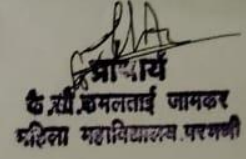 प्राचार्य
कै.सौ.कमलताई जामकर
महिला महाविद्यालय परभणी